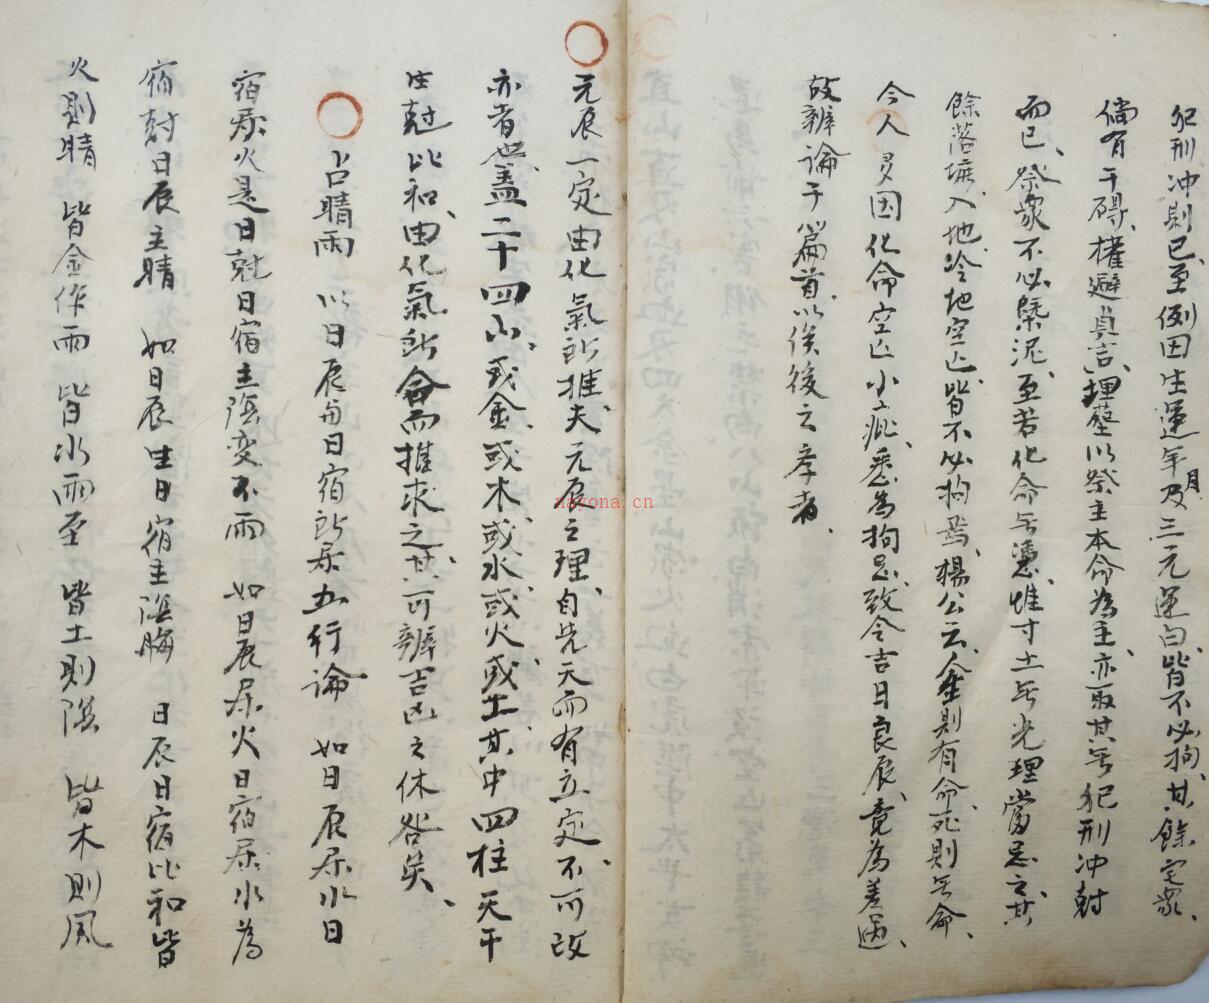 犯刑冲則已、至例因生運年月及三元運白、皆不必拘、其餘宅眾、
倘有干碍、權避貞吉、理塟以祭主本命為主、亦取其無犯刑冲尅
而已、祭眾不必槩泥、至若化命無憑、惟寸土無光、理當忌之、其
餘落壙、入地、冷地空亡、皆不必拘焉、楊公云、生則有命、死則無命、
今人多因化命空亡小疵、悉為拘忌、致令吉日良辰、竟為差過、
故辨論于篇首、以俟後之孝者、
元辰一定由化氣所推、夫元辰之理、自先天而有立定、不可改
亦者也、蓋二十四山、或金或木或水、或火或土、其中四柱天干
生尅比和、由化氣所合而推求之、其可辨吉凶之休咎矣、
占晴雨 以日辰與日宿所居五行論 如日辰居水日
宿居火是日尅日宿主陰变不雨 如日辰居火日宿居水為
宿尅日辰主晴 如日辰生日宿主陰晦 日辰日宿比和皆
火則晴 皆金作雨 皆水雨至 皆土則陰 皆木則風
nayona.cn